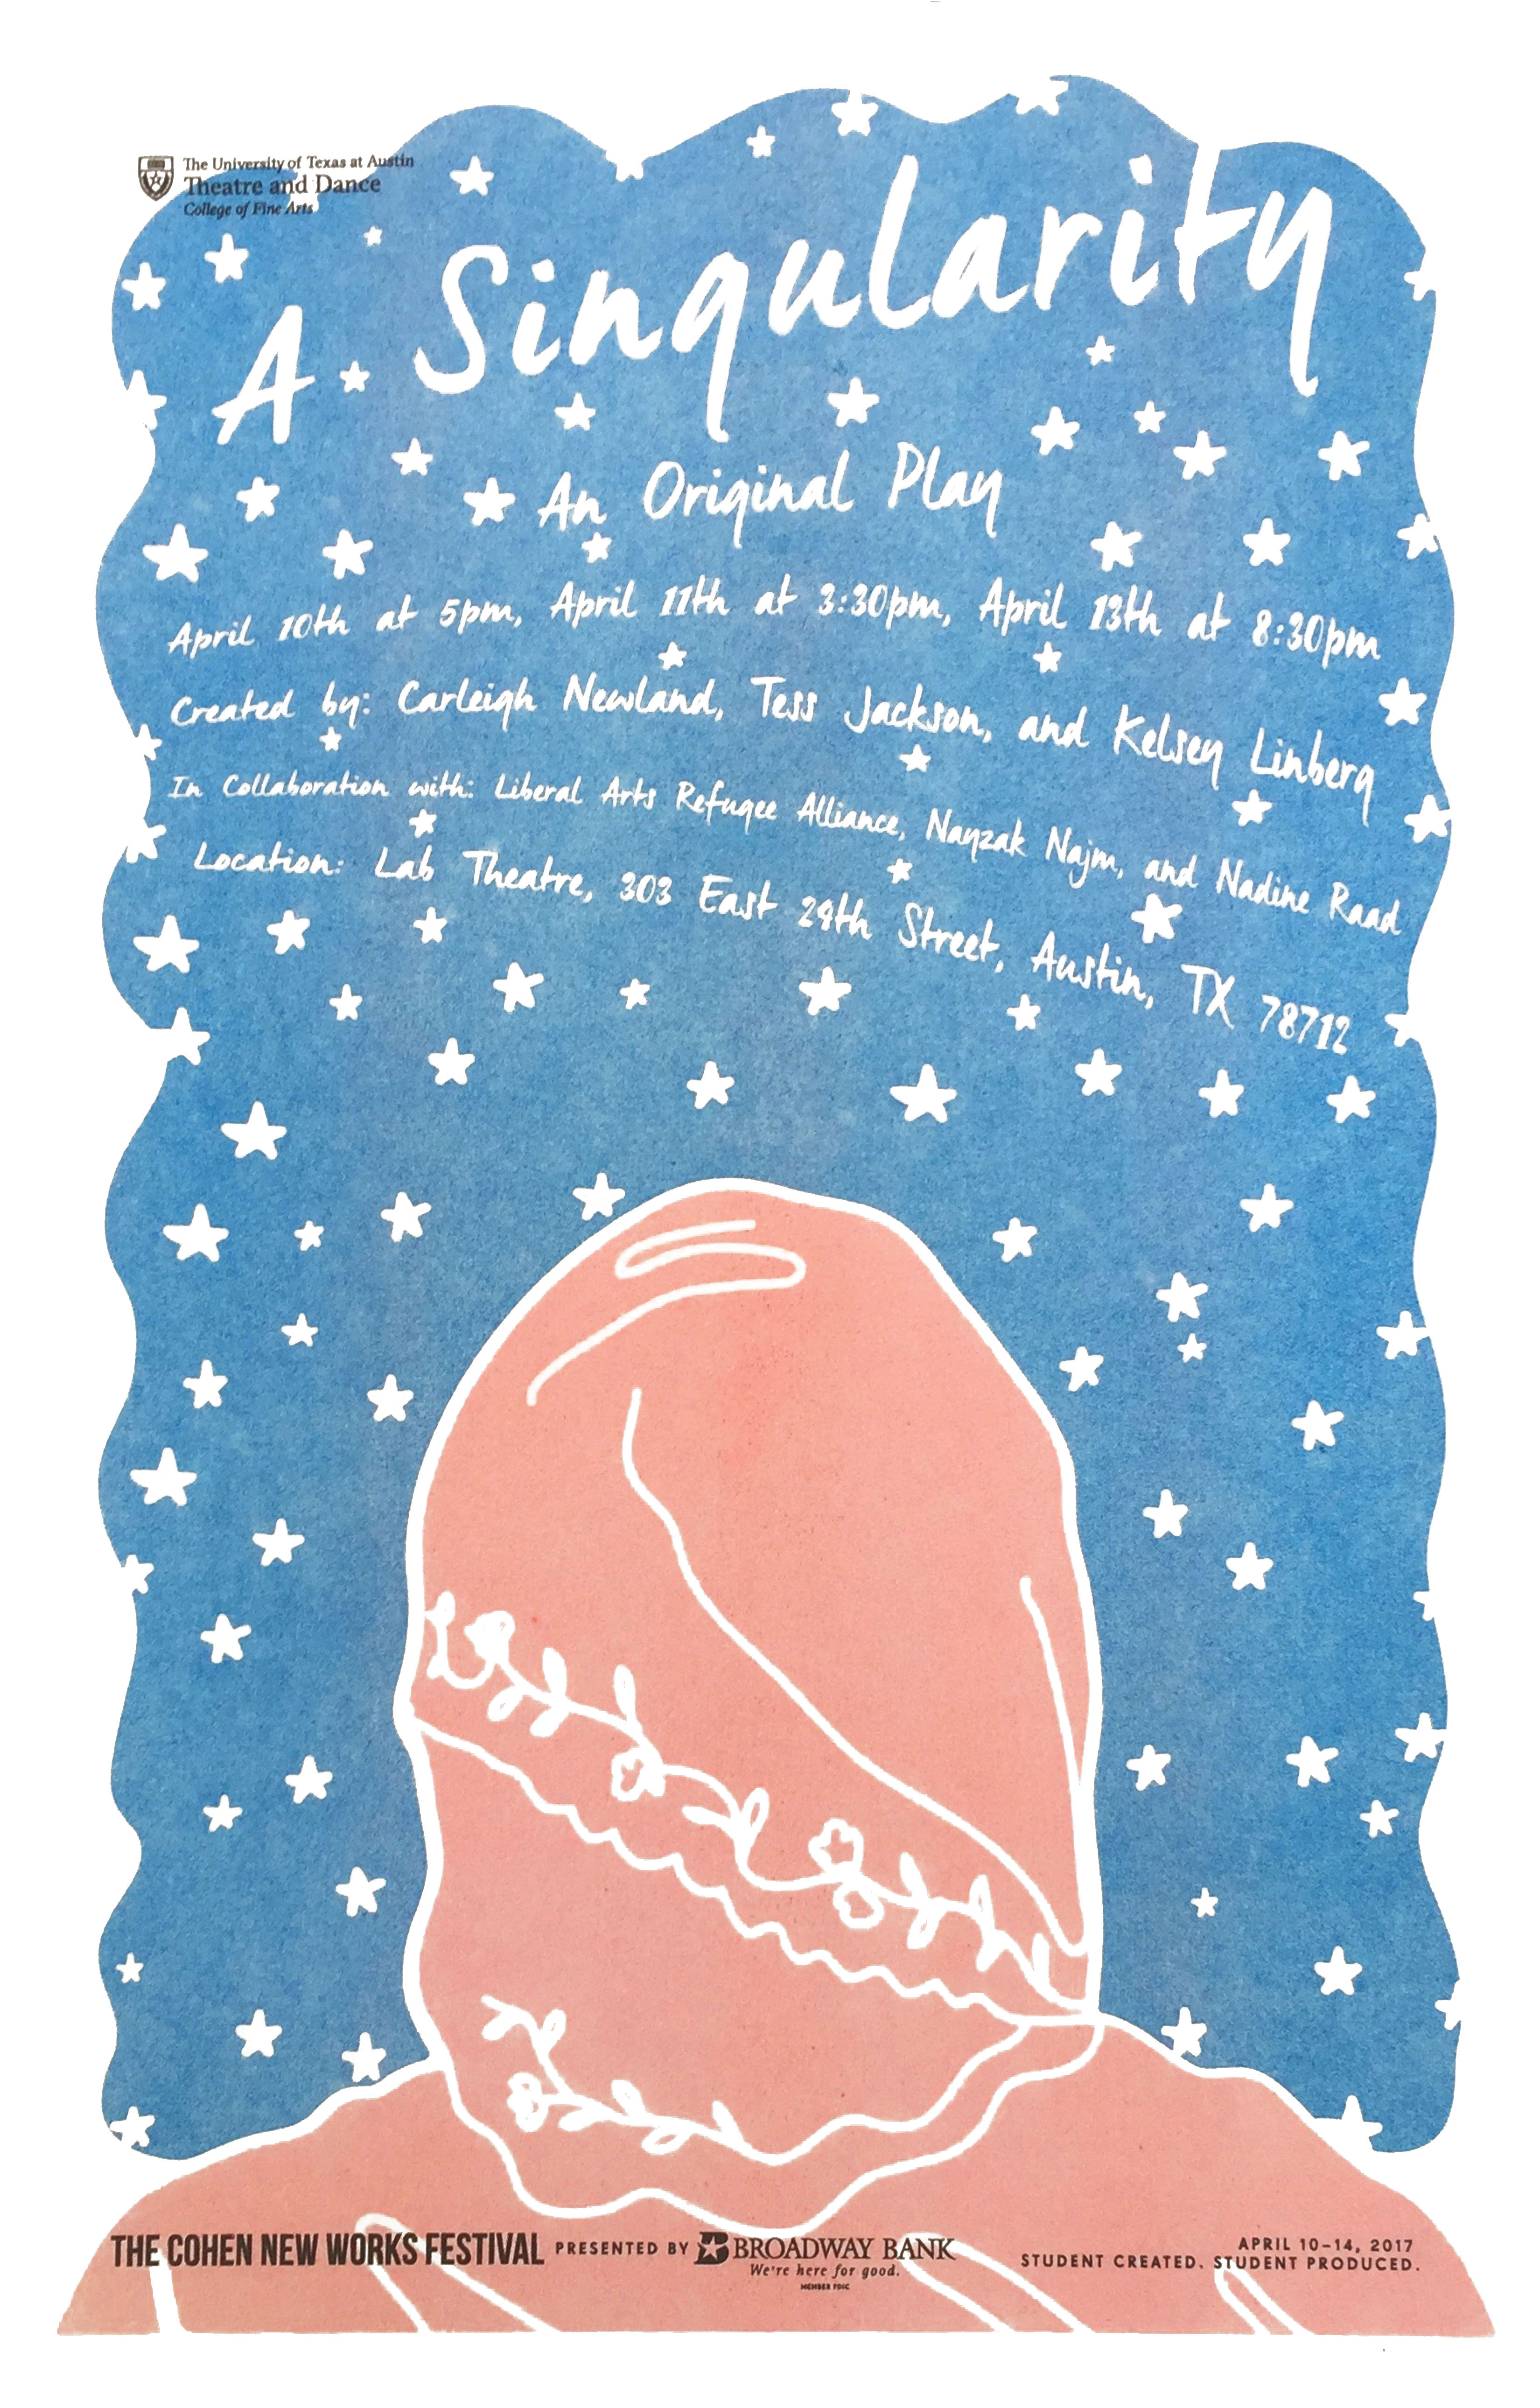 The University of Texas at Austin
Theatre and Dance
College of Fine Arts
A Singularity
An Original Play
April 10th at 5pm, April 11th at 3:30pm, April 13th at 8:30pm
Created by: Carleigh Newland, Tess Jackson, and Kelsey Linberg
In Collaboration with: Liberal Arts Refugee Alliance, Nayzak Najm, and Nadine Raad
Location: Lab Theatre, 303 East 24th Street, Austin, TX 78712
THE COHEN NEW WORKS FESTIVAL PRESENTED BY BROADWAY BANK
We're here for good.
MEMBER FDIC
APRIL 10–14, 2017
STUDENT CREATED. STUDENT PRODUCED.